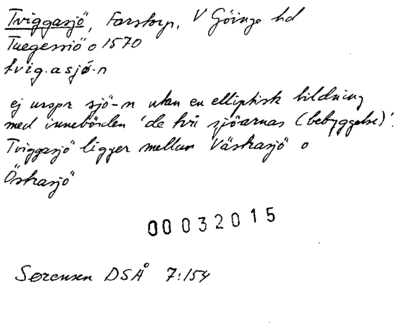 Tviggasjö, Farstorp, V Göinge hd
Tuegessiö o 1570
tvig.asjö.n
ej urspr sjö-n utan en elliptisk bildning
med innebörden 'de två sjöarnas (bebyggelse)'.
Tviggasjö ligger mellan Västrasjö o
Östrasjö
00032015
Sørensen DSÅ 7:154